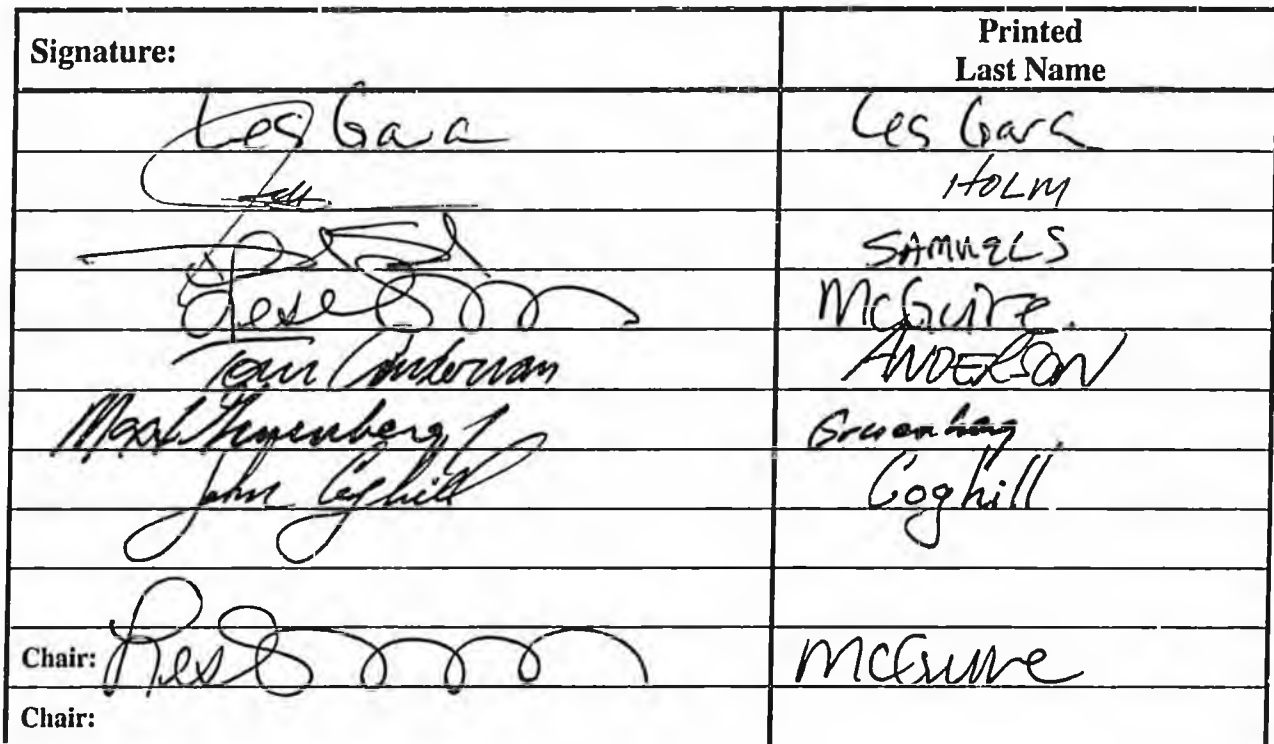 Signature: Printed
Last Name
Les Gara Les Gara
HOLM
SAMUELS
McGuire.
Tom Anderson ANDERSON
Max Gruenberg Gruenberg
John Coghill Coghill
Chair: McGuire
Chair: